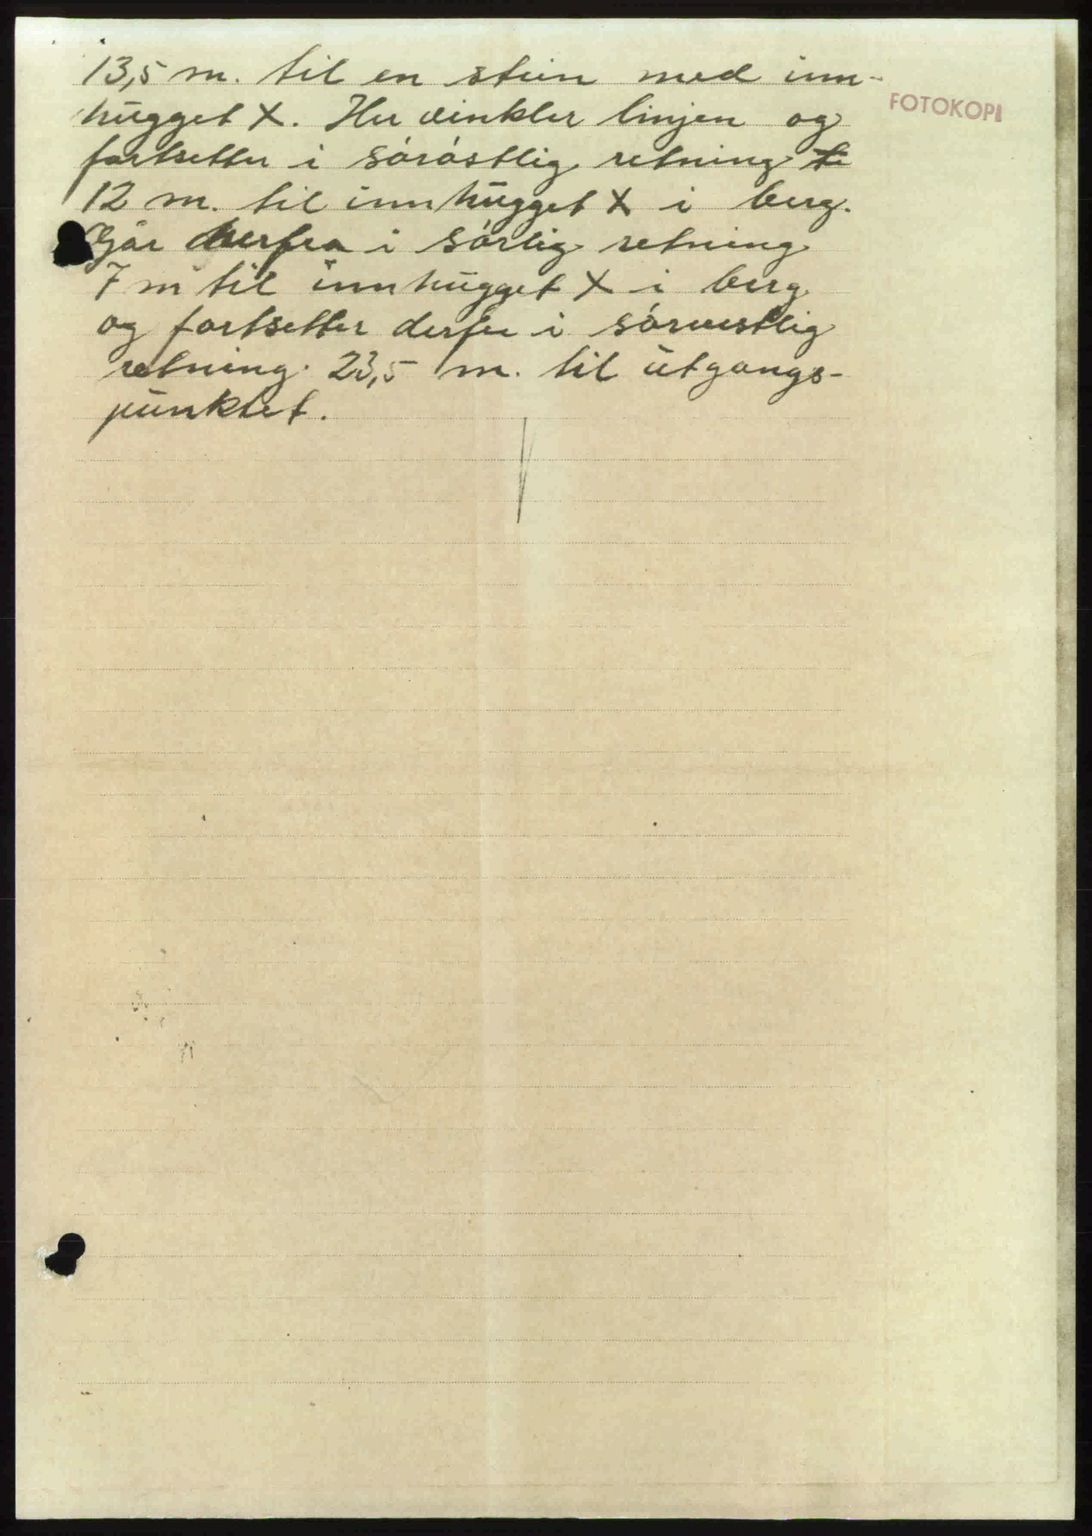 13,5 m. til en stein med inn-
hugget X. Her vinkler linjen og
fortsetter i sørøstlig retning
12 m. til innhugget X i berg.
Går derfra i sørlig retning
7 m til innhugget X i berg
og fortsetter derfra i sørvestlig
retning. 23,5 m. til utgangs-
punktet.
FOTOKOPI